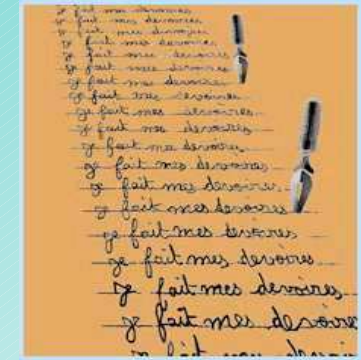 je fait mes devoires
je fait mes devoires
je fait mes devoires
je fait mes devoires
je fait mes devoires
je fait mes devoires
je fait mes devoires
je fait mes devoires
je fait mes devoires
je fait mes devoires
je fait mes devoires
je fait mes devoires
je fait mes devoires
je fait mes devoires
je fait mes devoires
je fait mes devoires
je fait mes devoires
je fait mes devoires